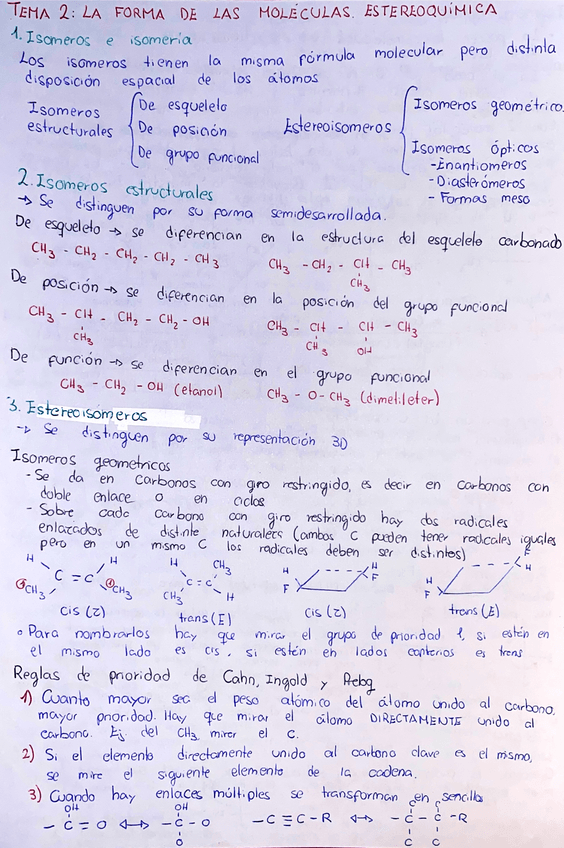 TEMA 2: LA FORMA DE LAS MOLÉCULAS. ESTEREOQUÍMICA
1. Isomeros e isomería
Los isomeros tienen la misma fórmula molecular pero distinta
disposición espacial de los átomos
Isomeros estructurales
De esqueleto
De posición
De grupo funcional
Estereoisomeros
Isomeros geométrico.
Isomeros ópticos
- Enantiomeros
- Diasterómeros
- Formas meso
2. Isomeros estructurales
→ Se distinguen por su forma semidesarrollada.
De esqueleto → se diferencian en la estructura del esqueleto carbonado
CH3 - CH2 - CH2 - CH2 - CH3    CH3 - CH2 - CH - CH3
CH3
De posición → se diferencian en la posición del grupo funcional
CH3 - CH - CH2 - CH2 - OH    CH3 - CH - CH - CH3
CH3    CH3    OH
De función → se diferencian en el grupo funcional
CH3 - CH2 - OH (etanol)    CH3 - O - CH3 (dimetileter)
3. Estereoisómeros
→ Se distinguen por su representación 3D
Isomeros geometricos
- Se da en Carbonos con giro restringido, es decir en Carbonos con
doble enlace o en ciclos
- Sobre cada carbono con giro restringido hay dos radicales
enlazados de distinte naturaleza (ambos C pueden tener radicales iguales
pero en un mismo C los radicales deben ser distintos)
H    H    H    CH3    H    H    H    F
C = C    C = C    F    F    F    H
CH3    CH3    CH3    H
cis (Z)    trans (E)    cis (Z)    trans (E)
• Para nombrarlos hay que mirar el grupo de prioridad 1, si están en
el mismo lado es cis, si están en lados contrerios es trans
Reglas de prioridad de Cahn, Ingold y Prelog
1) Cuanto mayor sea el peso atómico del átomo unido al carbono,
mayor prioridad. Hay que mirar el átomo DIRECTAMENTE unido al
carbono. Ej del CH3 mirer el C.
2) Si el elemento directamente unido al carbono clave es el mismo,
se mire el siguiente elemento de la cadena.
3) Cuando hay enlaces múltiples se transforman en sencillo
OH    OH    C    C
- C = O ↔ - C - O    - C ≡ C - R ↔ - C - C - R
O    C    C